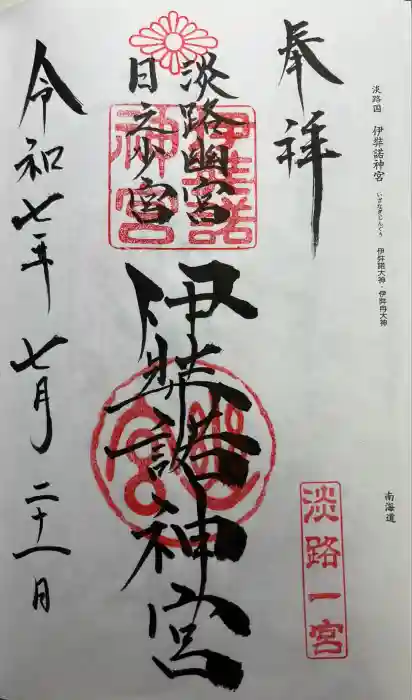 淡路国 伊弉諾神宮 いざなぎじんぐう 伊弉諾大神・伊弉冉大神
南海道
奉拝
淡路一宮
淡路幽宮
日之少宮
伊弉諾
神宮
伊弉諾神宮
幽宮
令和七年 七月 二十一日